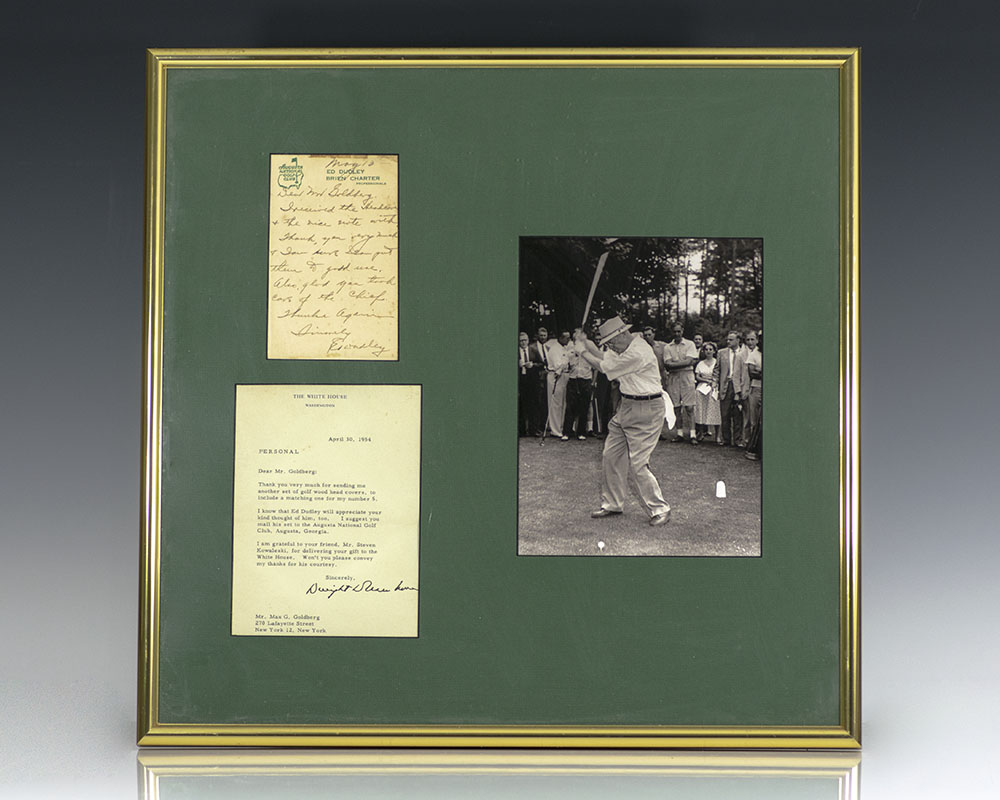 May 3
AUGUSTA
NATIONAL
GOLF
CLUB
ED DUDLEY
BRIEN CHARTER
PROFESSIONALS
Dear Mr Goldberg
I received the
& the nice note with
Thank you very much
& I am sure I can put
them to good use.
Also, glad you took
care of the Chief
Thanks Again
Sincerely
Ed Dudley
THE WHITE HOUSE
WASHINGTON
April 30, 1954
PERSONAL
Dear Mr. Goldberg:
Thank you very much for sending me
another set of golf wood head covers, to
include a matching one for my number 5.
I know that Ed Dudley will appreciate your
kind thought of him, too. I suggest you
mail his set to the Augusta National Golf
Club, Augusta, Georgia.
I am grateful to your friend, Mr. Steven
Kowaleski, for delivering your gift to the
White House. Won't you please convey
my thanks for his courtesy.
Sincerely,
Dwight D Eisenhower
Mr. Max G. Goldberg
270 Lafayette Street
New York 12, New York